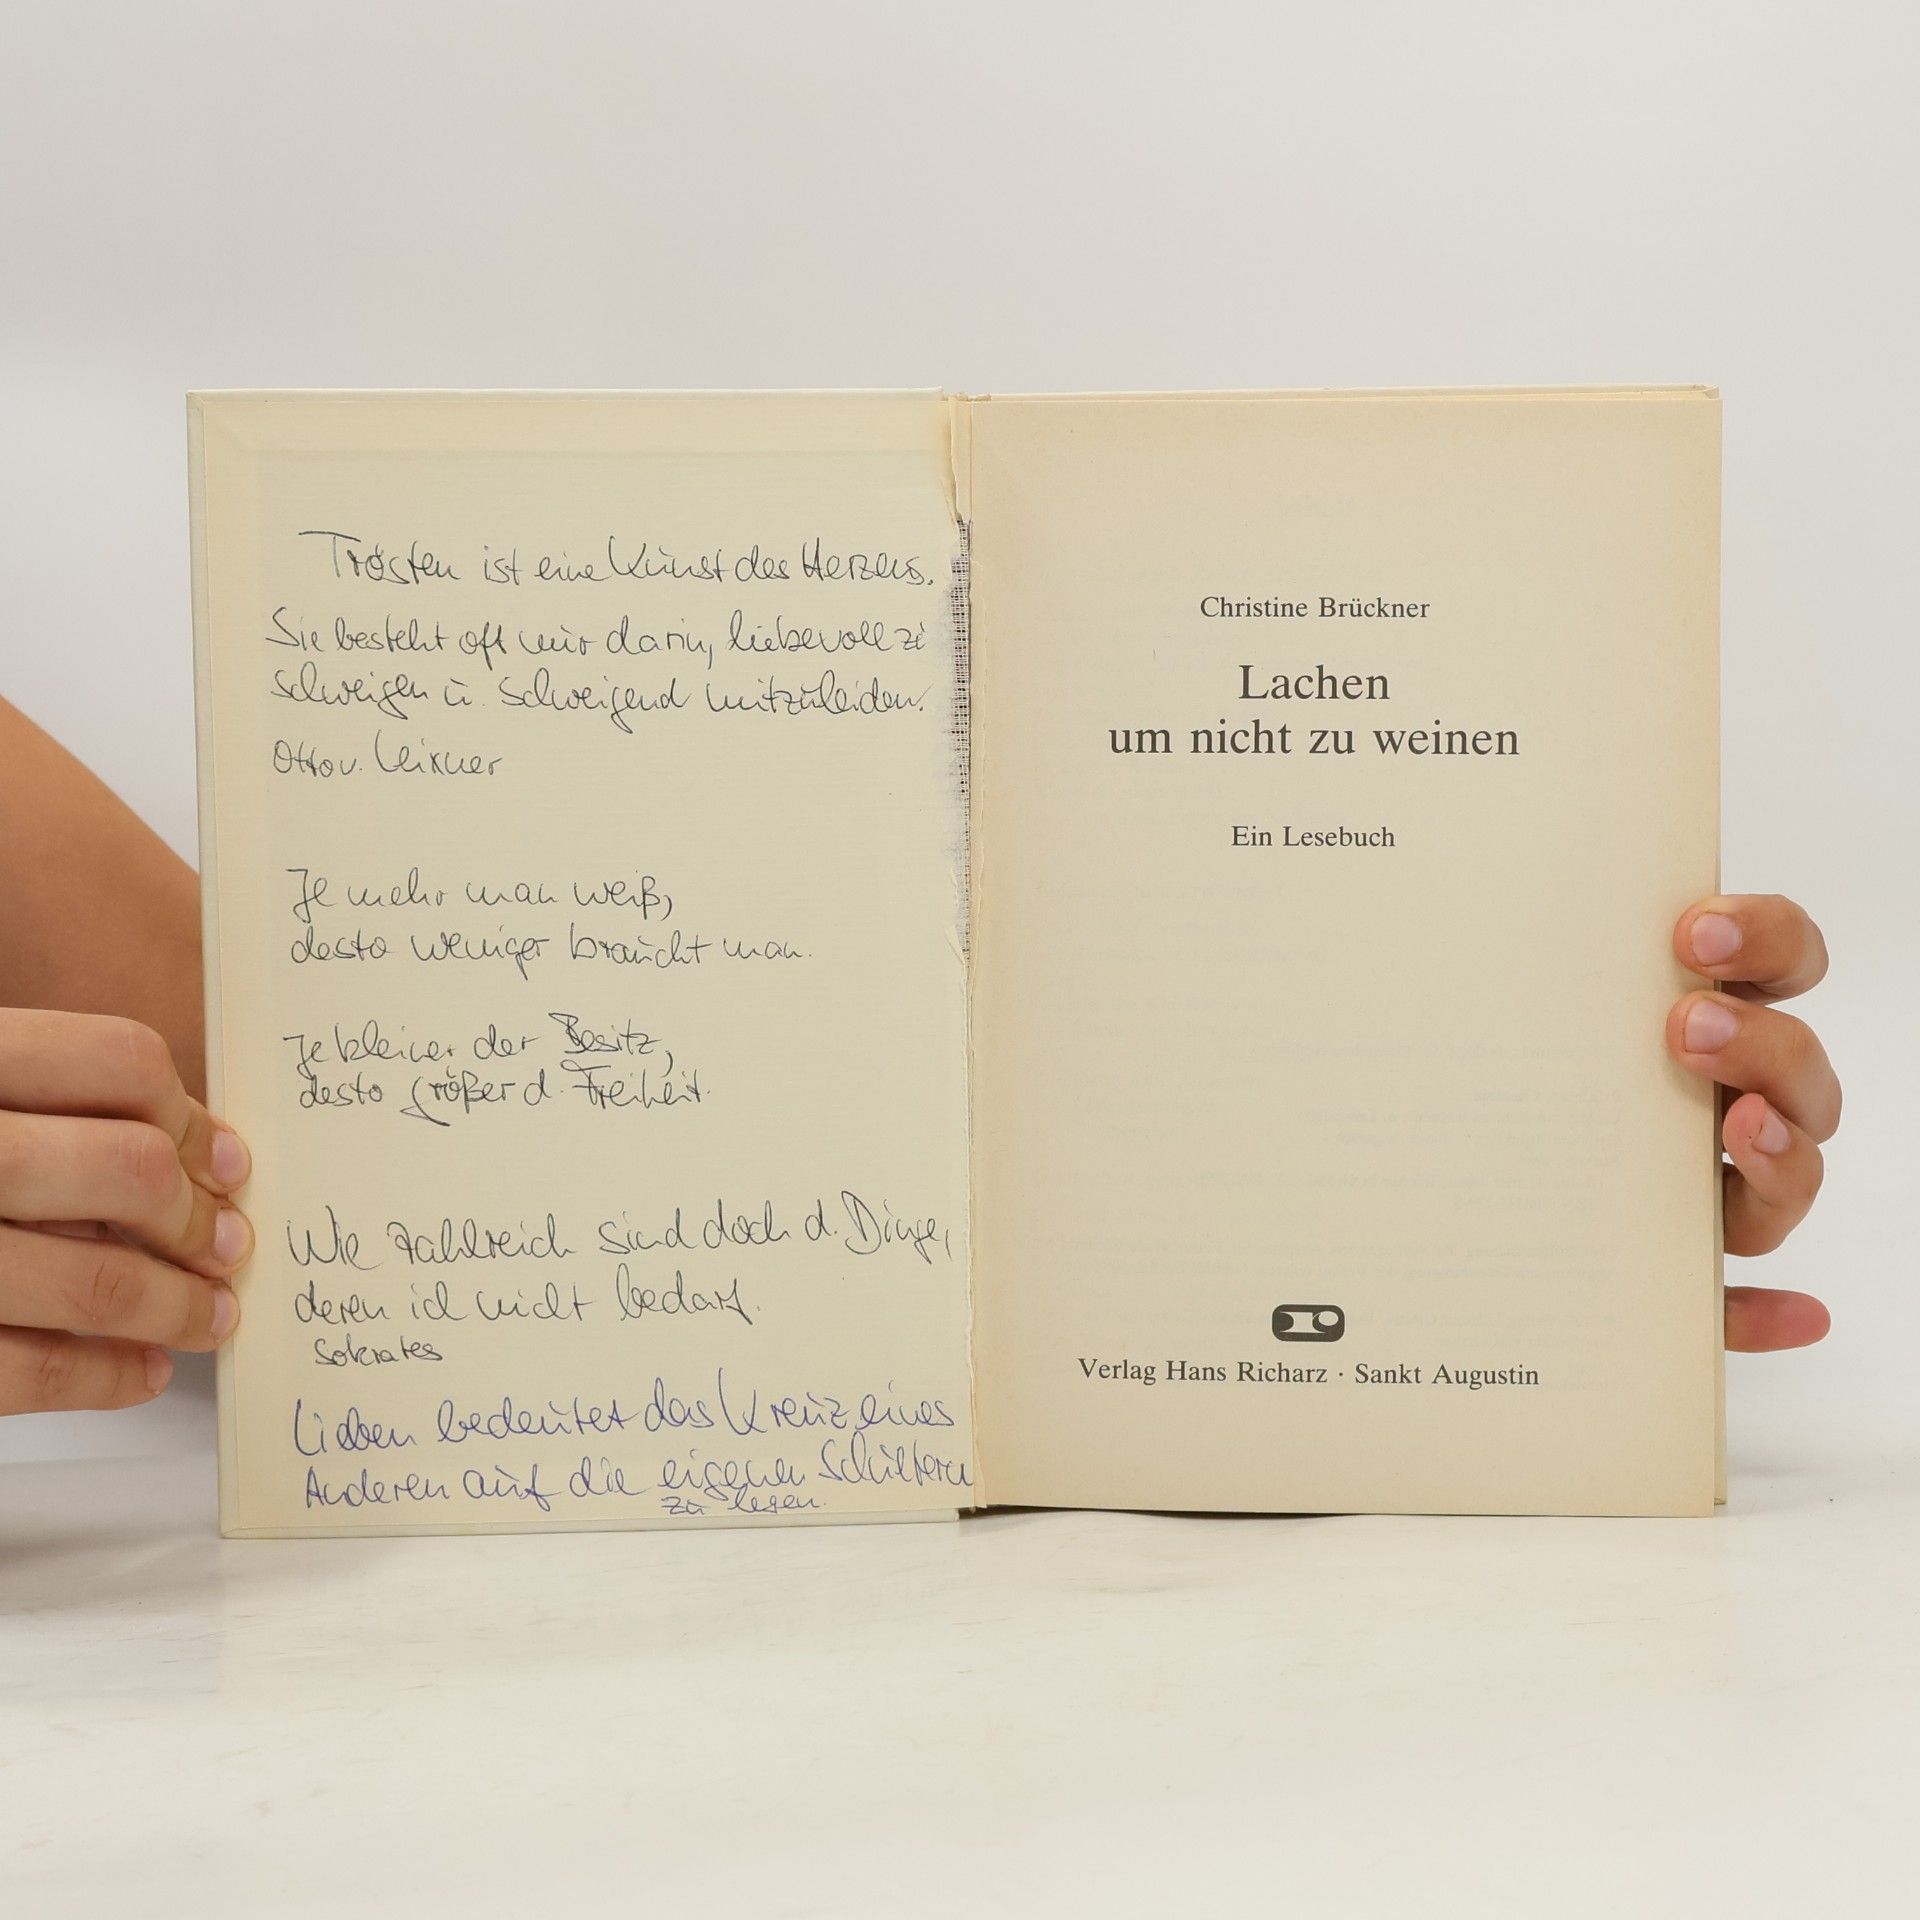 Trösten ist eine Kunst des Herzens.
Sie besteht oft nur darin, liebevoll zu
schweigen u. schweigend mitzuleiden.
Otto v. Leixner
Je mehr man weiß,
desto weniger braucht man.
Je kleiner der Besitz,
desto größer d. Freiheit.
Wie zahlreich sind doch d. Dinge,
deren ich nicht bedarf.
Sokrates
Lieben bedeutet das Kreuz eines
Anderen auf die eigenen Schultern
zu legen.
Christine Brückner
Lachen
um nicht zu weinen
Ein Lesebuch
Verlag Hans Richarz · Sankt Augustin